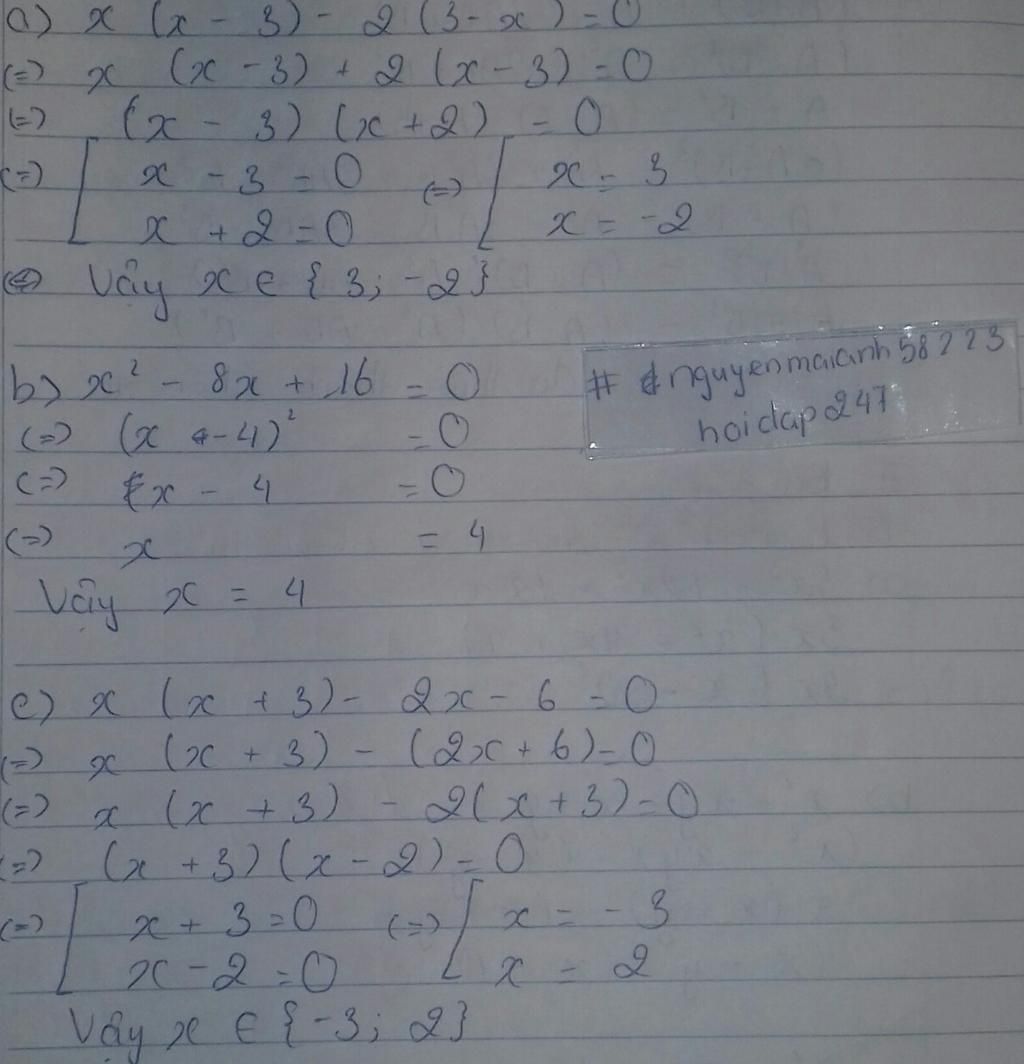 a) x (x - 3) - 2 (3 - x) = 0
(=) x (x - 3) + 2 (x - 3) = 0
(=) (x - 3) (x + 2) = 0
(=) [ x - 3 = 0 (=) [ x = 3
x + 2 = 0 x = -2
(=) Vậy x ∈ {3; -2}
b) x² - 8x + 16 = 0
(=) (x - 4)² = 0
(=) x - 4 = 0
(=) x = 4
Vậy x = 4
# nguyenmaianh58223
hoidap247
c) x (x + 3) - 2x - 6 = 0
(=) x (x + 3) - (2x + 6) = 0
(=) x (x + 3) - 2(x + 3) = 0
(=) (x + 3) (x - 2) = 0
(=) [ x + 3 = 0 (=) [ x = -3
x - 2 = 0 x = 2
Vậy x ∈ {-3; 2}